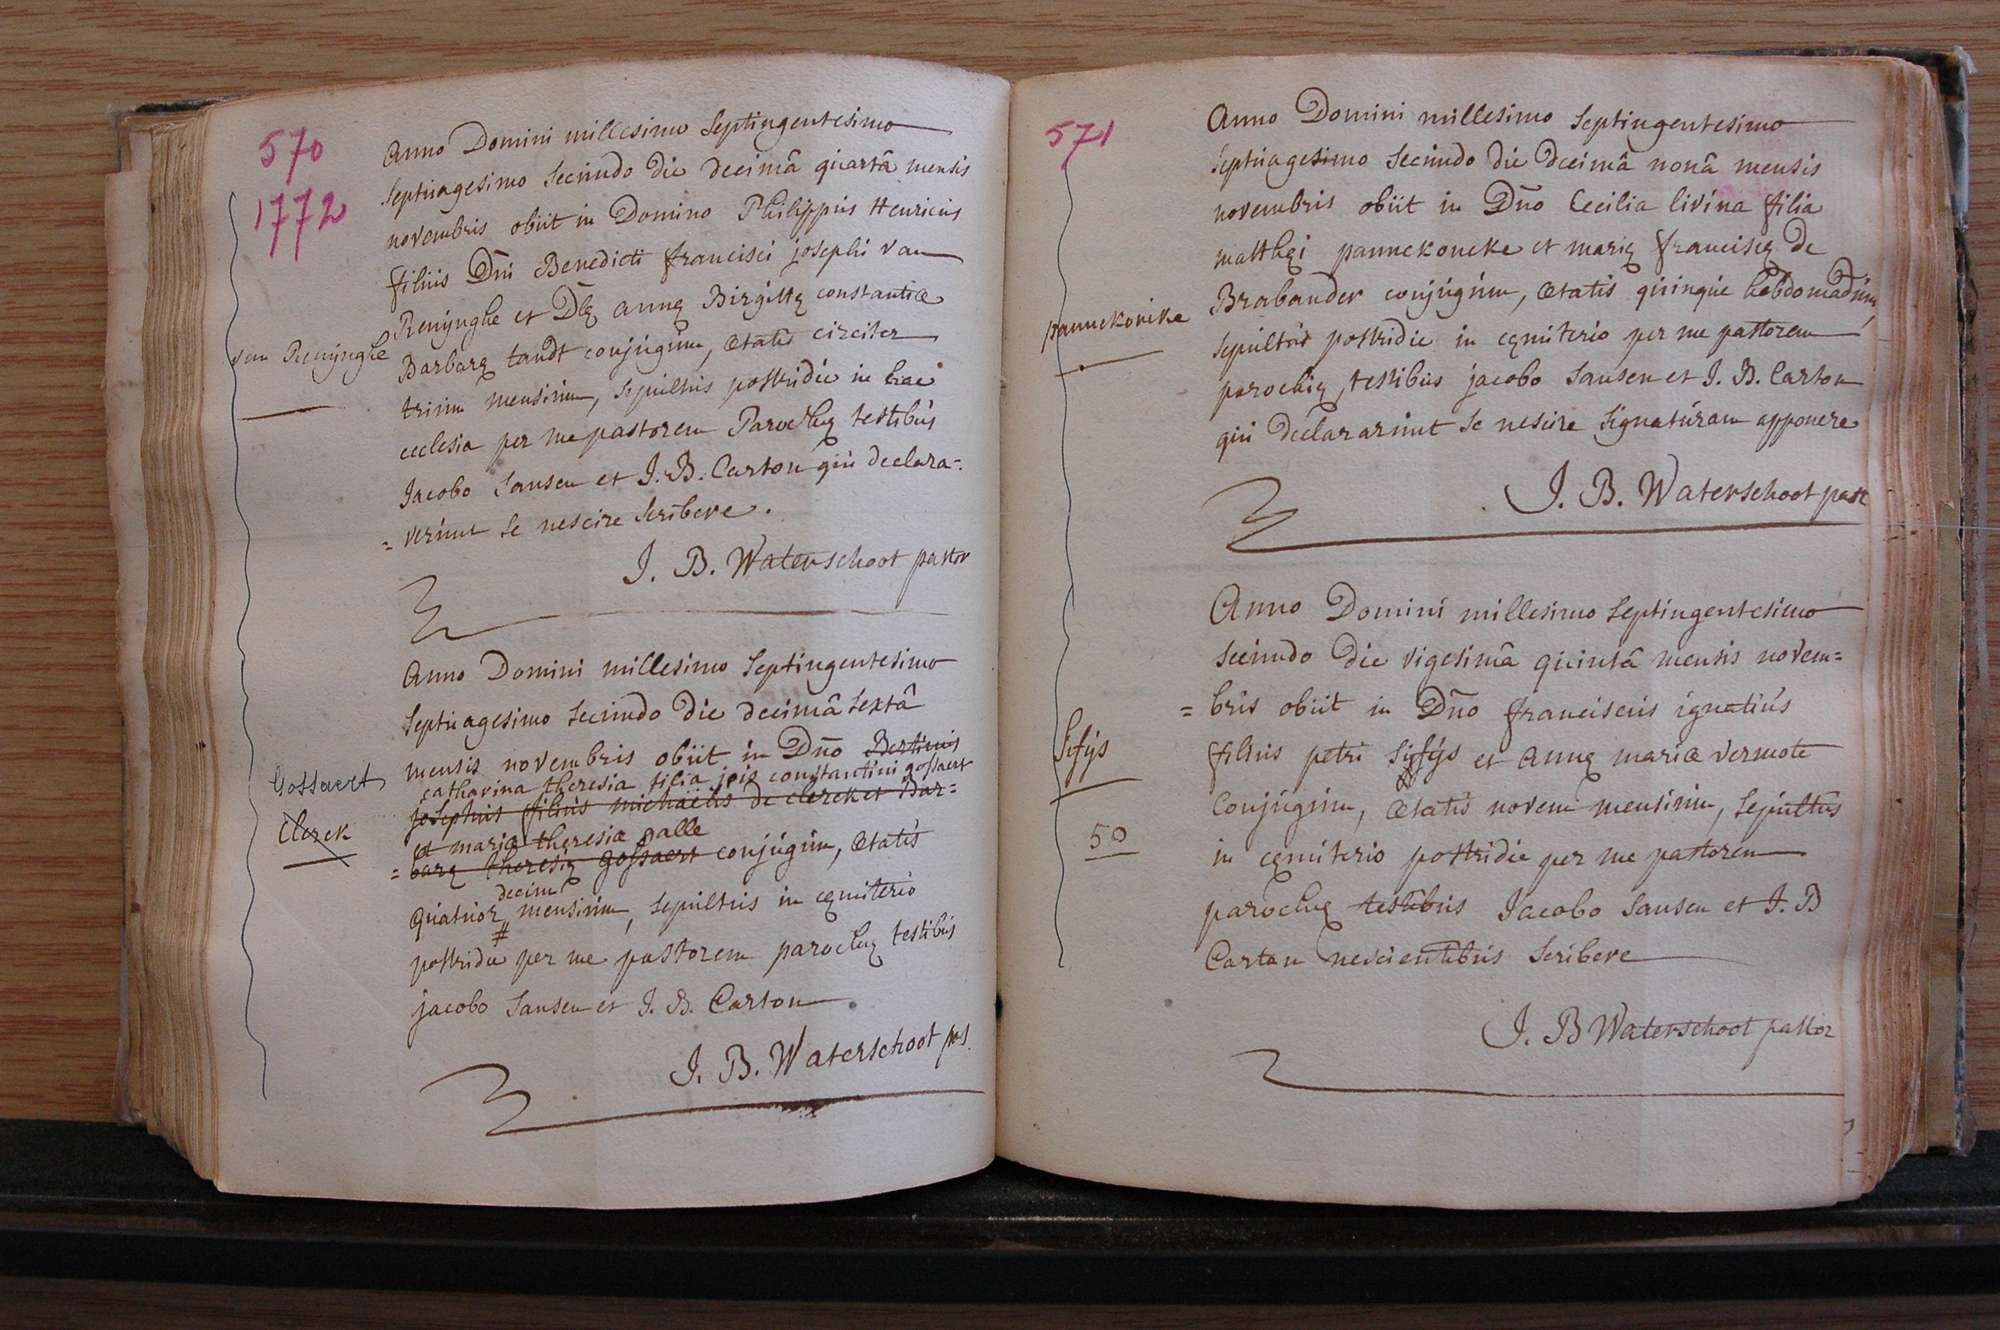 570
1772
Anno Domini millesimo septingentesimo
septuagesimo secundo die decimâ quartâ mensis
novembris obiit in Domino Philippus Henricus
filius Dni Benedicti francisci josephi van
Renijnghe et Dlę annę Birgittę constantiæ
Barbarę tandt conjugum, ætatis circiter
trium mensium, sepultus postridie in hac
ecclesia per me pastorem Parochię testibus
Jacobo Sansen et J. B. Carton qui declara-
= verunt se nescire scribere.
van Renijnghe
J. B. Waterschoot pastor
Anno Domini millesimo septingentesimo
septuagesimo secundo die decimâ sextâ
mensis novembris obiit in Dno Bertinus
catharina theresia filia jois constantini gossaert
josephus filius michaëlis de clerck et Bar-
et mariæ theresiæ palle
= barę theresię gossaert conjugum, ætatis
decim
quatuor mensium, sepultus in cęmiterio
#
postridie per me pastorem parochię testibus
jacobo Sansen et J. B. Carton
Gossaert
Clerck
J. B. Waterschoot pas.
571
Anno Domini millesimo septingentesimo
septuagesimo secundo die decimâ nonâ mensis
novembris obiit in Dno Cecilia livina filia
matthęi pannekoucke et marię francisçę de
Brabander conjugum, ætatis quinque hebdomadum,
sepulta postridie in cęmiterio per me pastorem
parochię, testibus jacobo Sansen et J. B. Carton
qui declararunt se nescire signaturam apponere
pannekoucke
J. B. Waterschoot past
Anno Domini millesimo septingentesimo
secundo die vigesimâ quintâ mensis novem=
= bris obiit in Dno franciscus ignatius
filius petri Sijfijs et annę mariæ vermote
conjugum, ætatis novem mensium, sepultus
in cęmiterio postridie per me pastorem
parochię testibus Jacobo Sansen et J. B
Carton nescientibus scribere
Sijfijs
50
J. B Waterschoot pastor